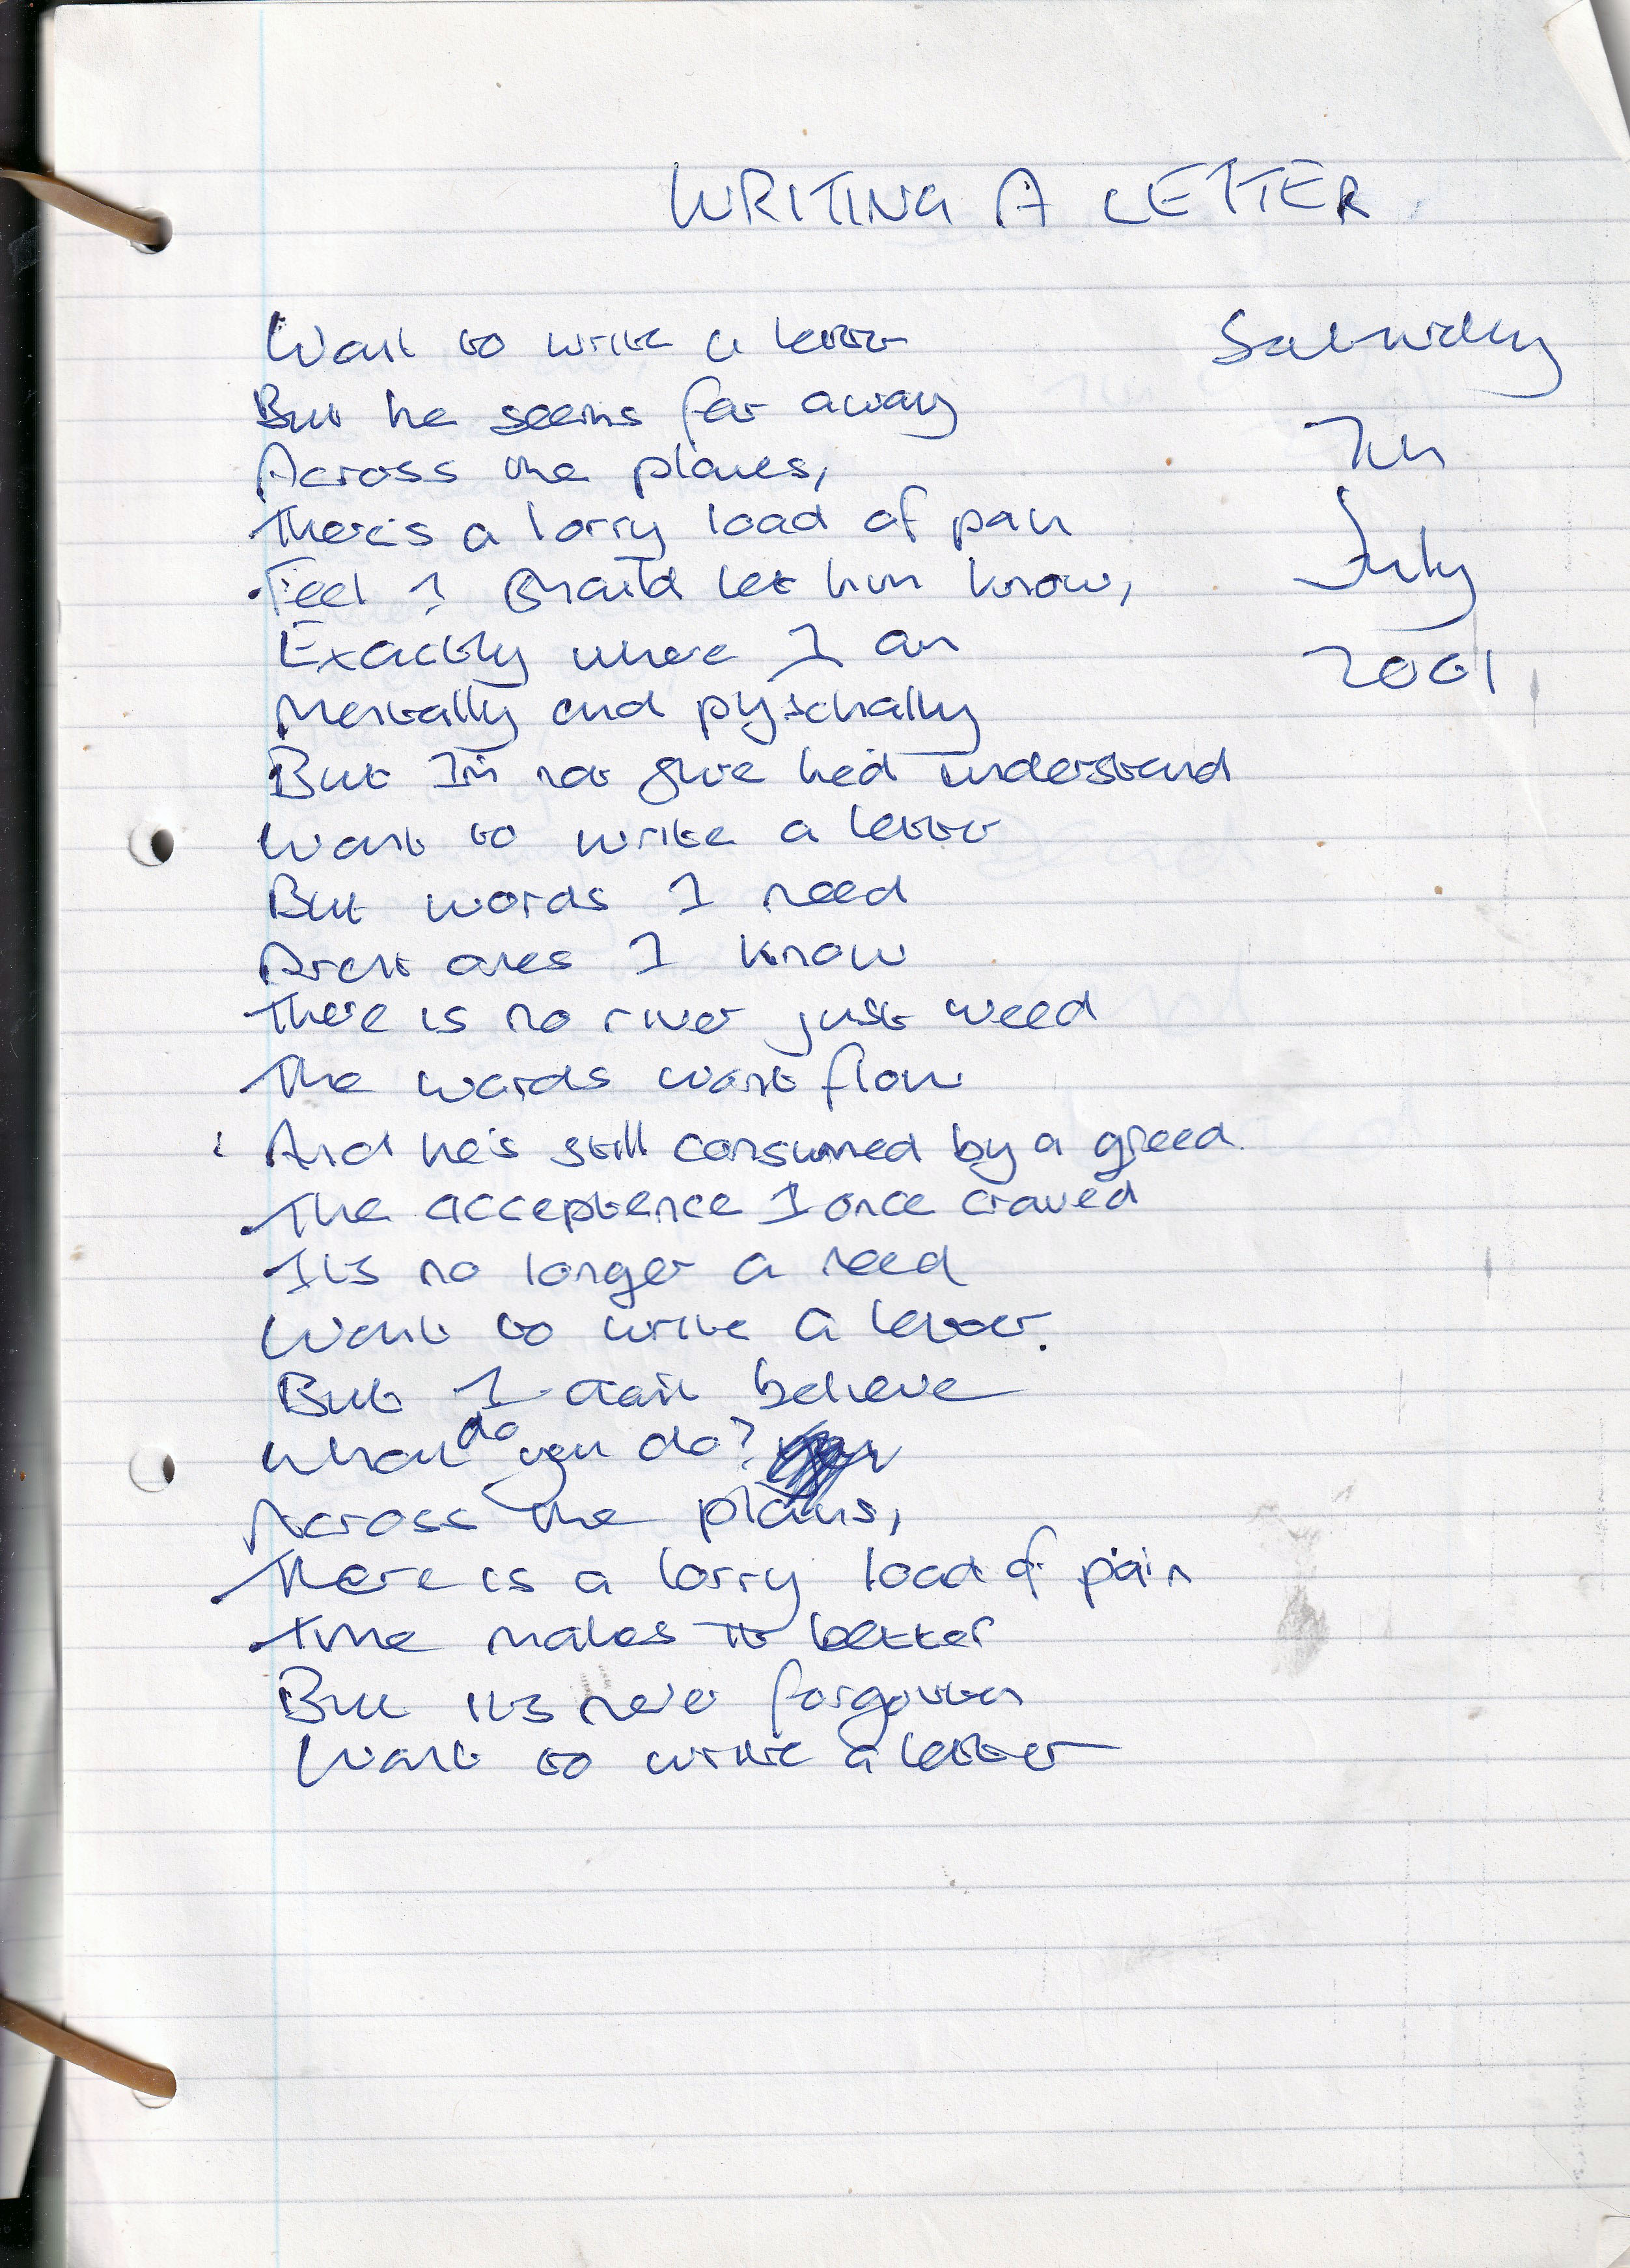 WRITING A LETTER
Want to write a letter
Saturday
But he seems far away
7th
Across the planes,
There's a lorry load of pain
July
Feel I should let him know,
Exactly where I am
2001
Mentally and pyschally
But I'm not sure he'd understand
Want to write a letter
But words I need
Aren't ones I know
There is no river just weed
The words won't flow
And he's still consumed by a greed
The acceptence I once craved
It's no longer a need
Want to write a letter.
But I can't believe
What do you do?
Across the plains,
There is a lorry load of pain
time makes it better
But it's never forgotten
Want to write a letter